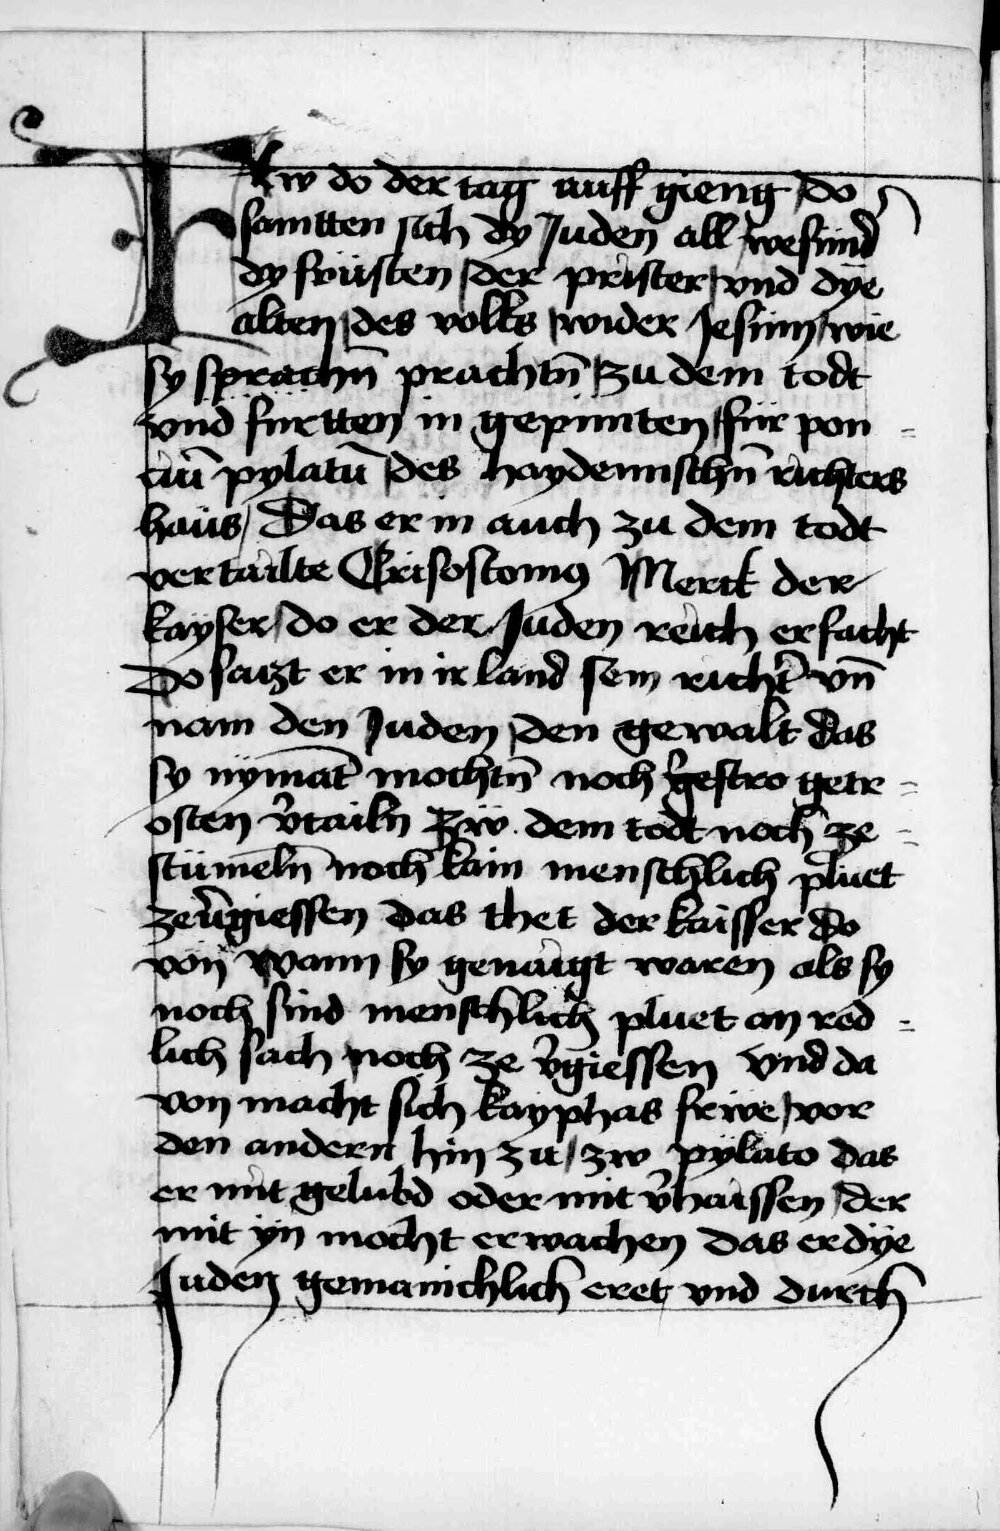 Frw do der tag auff gieng do
samtten sich dy Juden all wesund
dy früsten der prister vnd dÿe
alten des volks wider Jesum wie
sy sprachn̄ prachtn̄ zu dem todt
vnd furtten in gepunten für pon=
ciū pylatū des haydennischn̄ richters
haus Das er in auch zu dem todt
vertailte Crisostomus Merck der
kayser do er der Juden reich erfacht
Do saczt er in ir land sein richt̄ vn̄
nam den Juden den gewalt das
sy nÿmāt mochtn̄ noch getr=
osten v̄tailn zw dem todt noch ze=
stümeln̄ noch kain menschlich pluet
zev̄giessen das thet der kaisser do
von Wann sy genaigt waren als sy
noch sind menschlich pluet an red=
lich sach noch ze v̄giessen Vnd da
von macht sich kayphas frwe vor
den andern hin zu zw pÿlato das
er mit gelubd oder mit v̄haissen der
mit ÿn mocht erwachen das er dÿe
Juden gemainichlich eret vnd durch